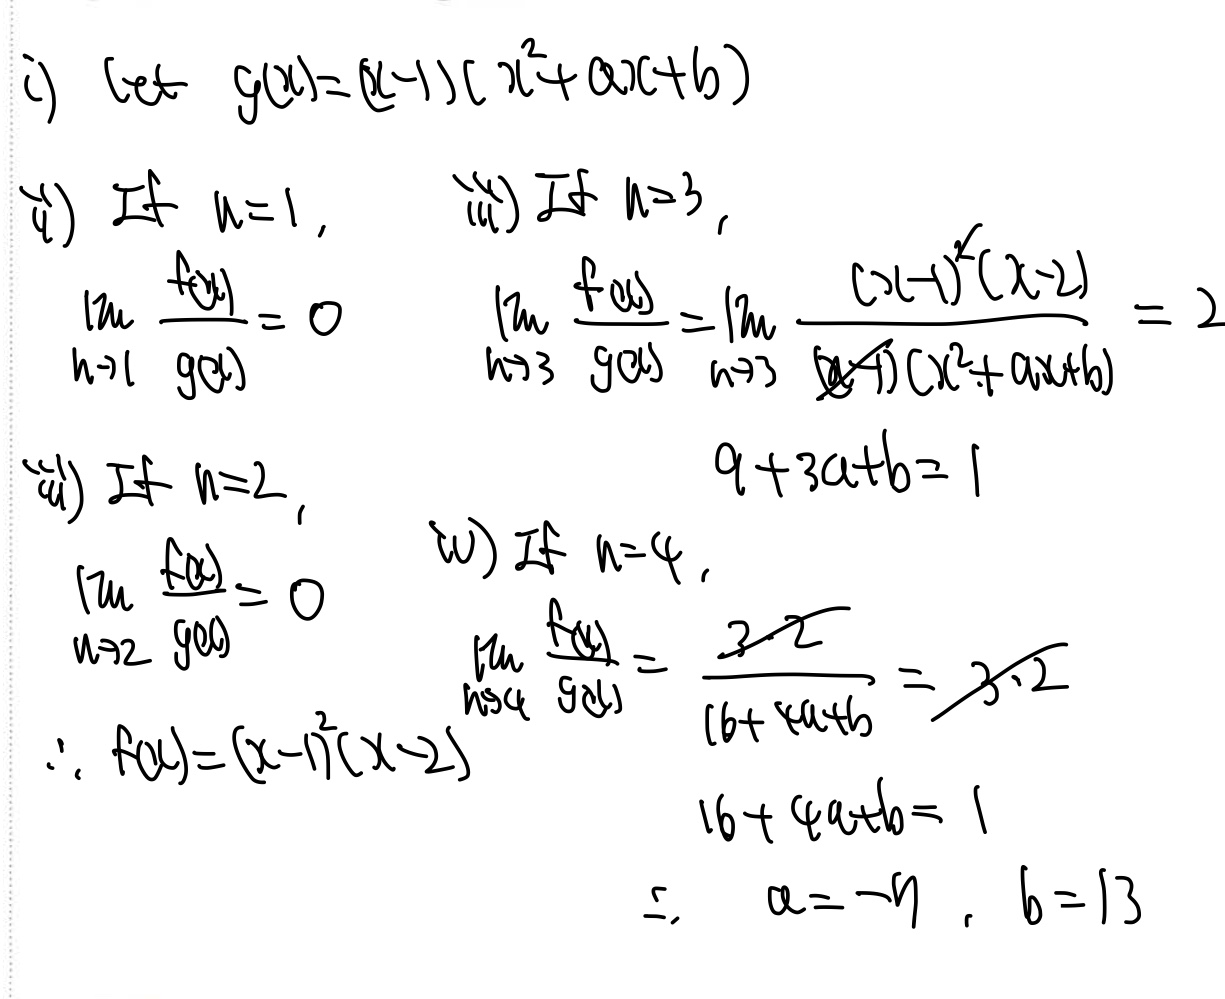 i) let g(x)=(x-1)(x²+ax+b)
ii) If n=1,
lim f(x)/g(x) = 0
n→1
iii) If n=2,
lim f(x)/g(x) = 0
n→2
∴ f(x)=(x-1)²(x-2)
iii) If n=3,
lim f(x)/g(x) = lim (x-1)²(x-2)/(x-1)(x²+ax+b) = 2
n→3 n→3
9+3a+b=1
iv) If n=4,
lim f(x)/g(x) = 3·2/16+4a+b = 3·2
n→4
16+4a+b=1
∴ a=-7, b=13